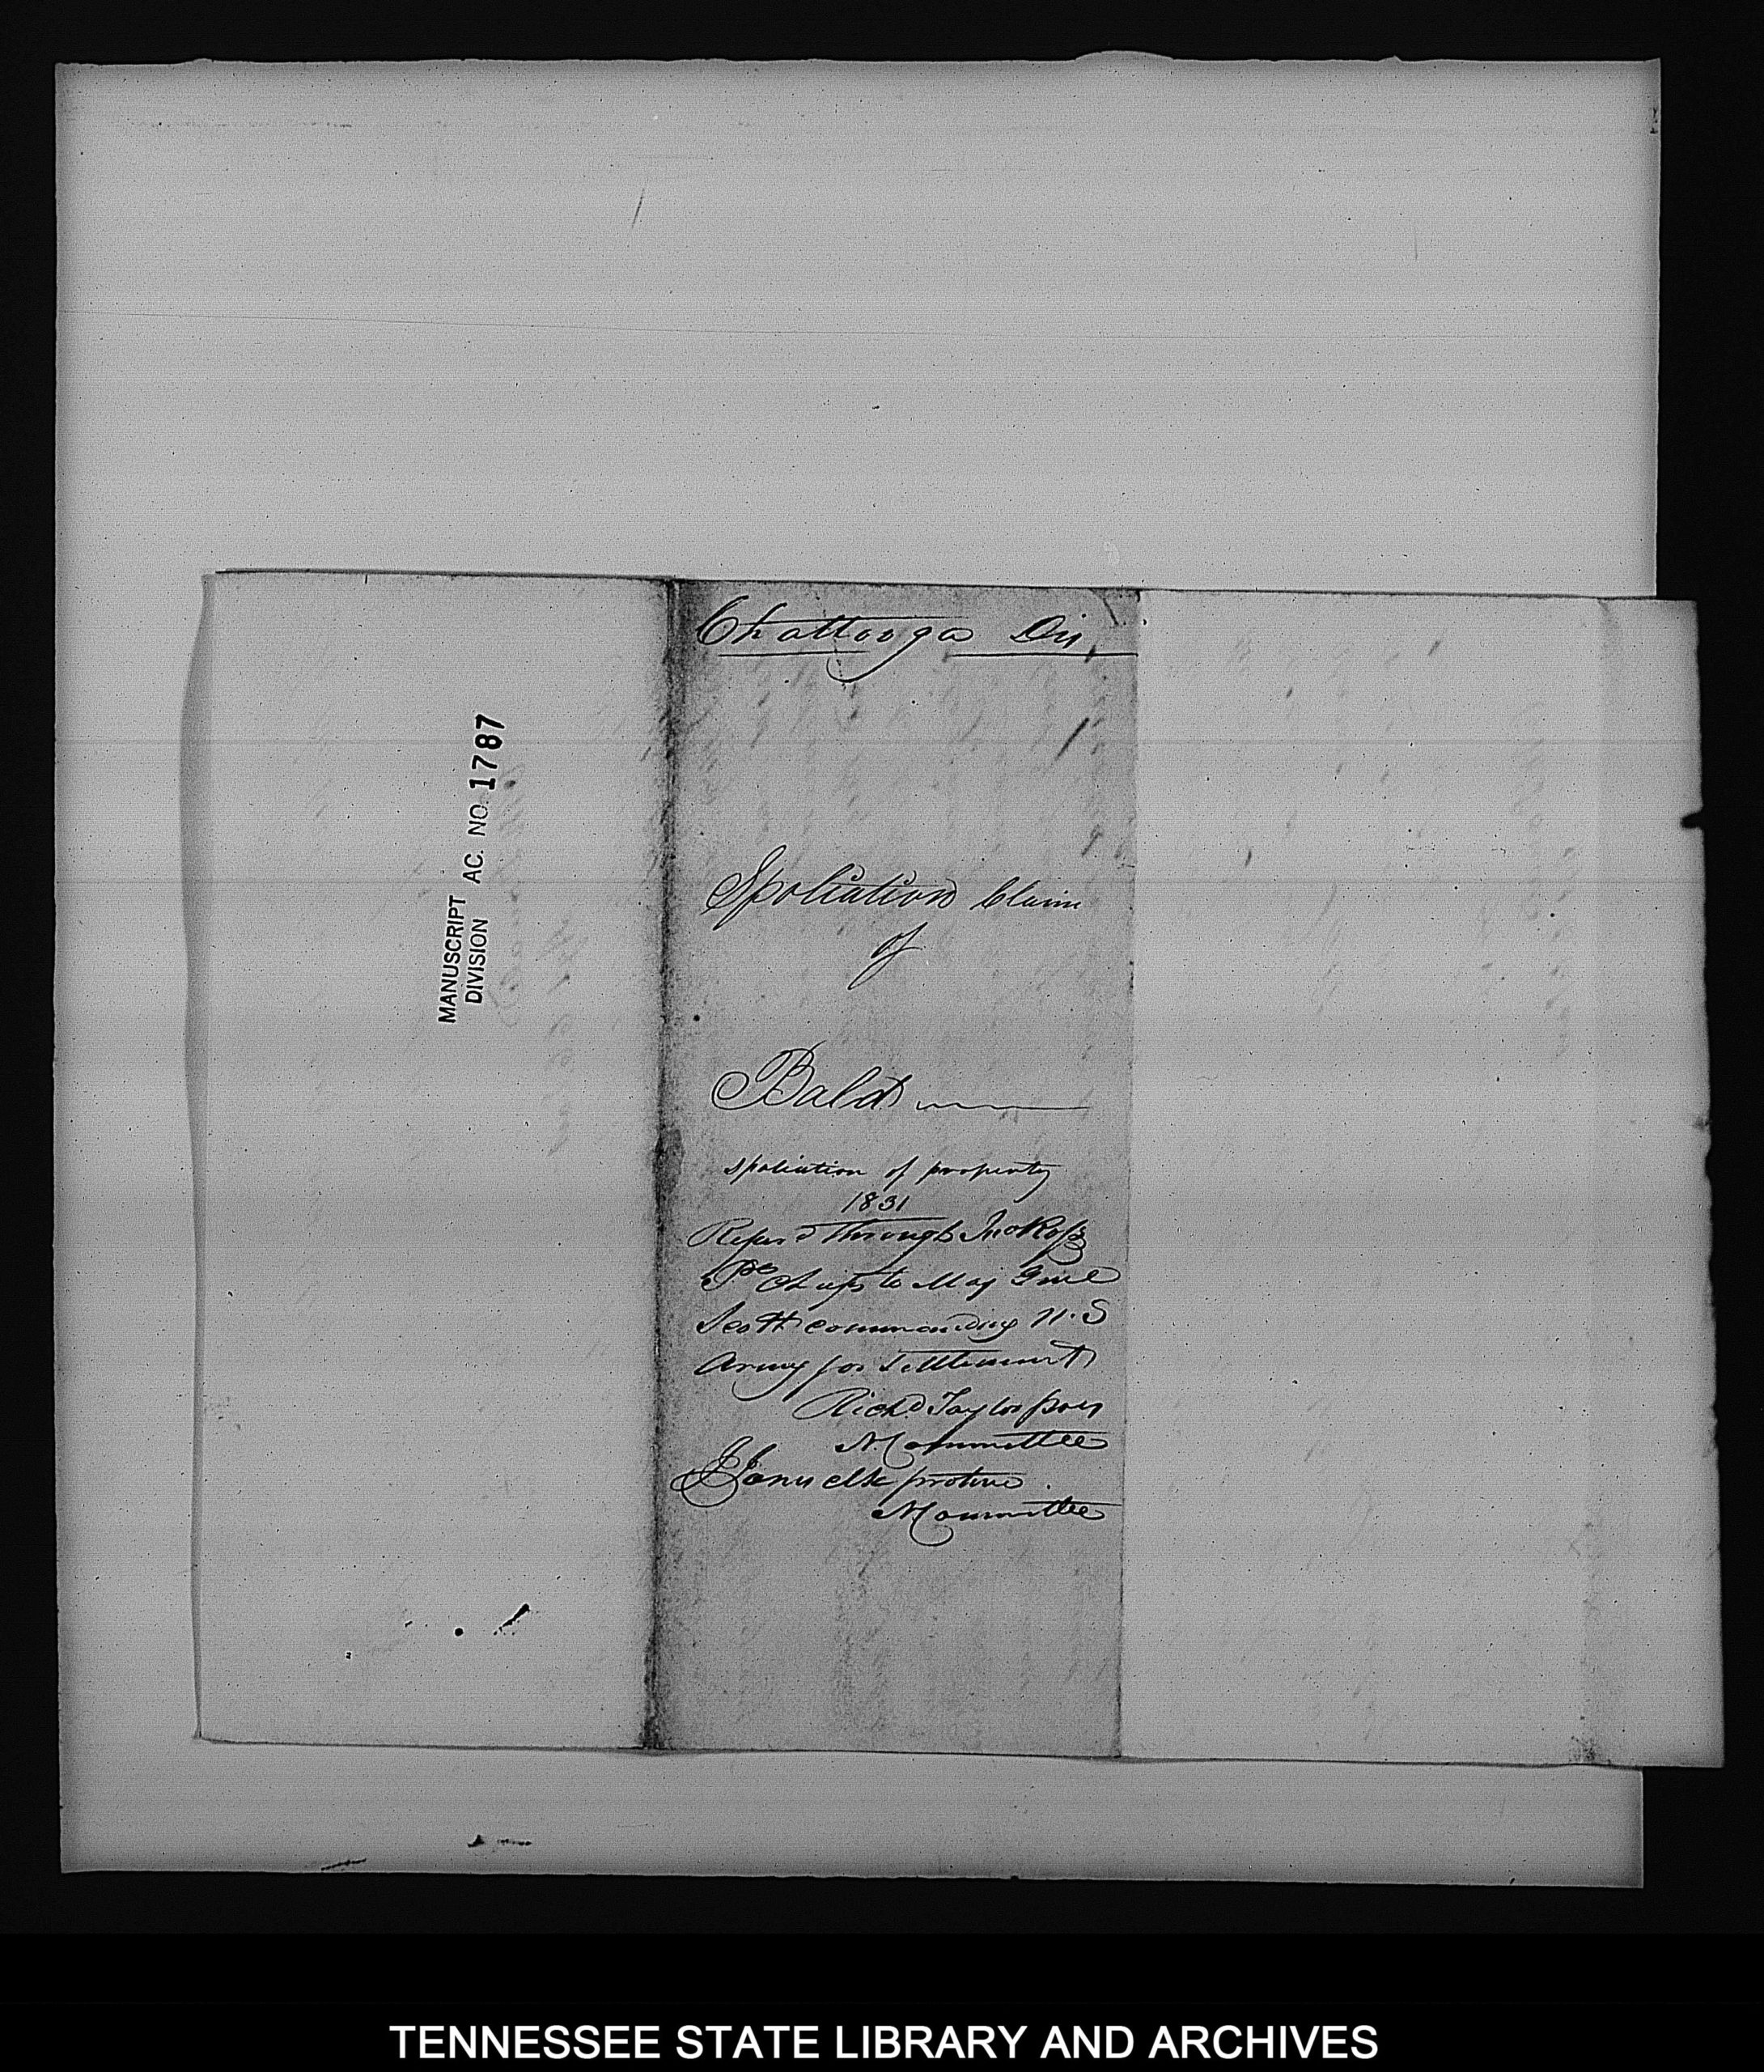 Chattooga Dis,
Spoliation Claim
of
Bald
spoliation of property
1831
Referd through Jno Ross
Chief to Maj Genl
Scott commanding U.S
Army for settlement
Richd Taylor
N. Committee
clk protem
N Committee
MANUSCRIPT
DIVISION AC. NO. 1787
TENNESSEE STATE LIBRARY AND ARCHIVES